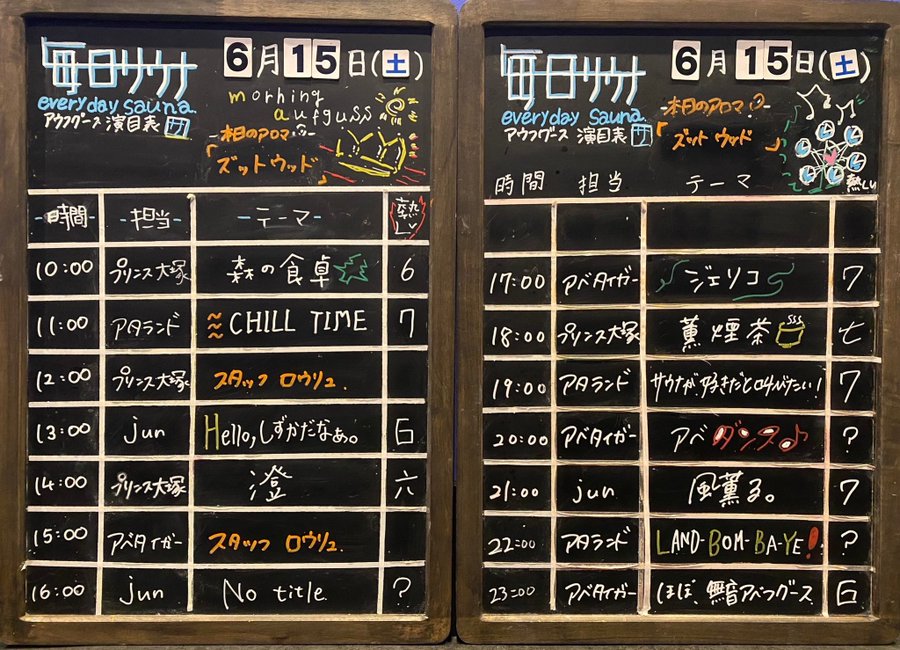 毎日サウナ
6月15日(土)
everyday sauna.
アウフグース 演目表
morning
aufguss
本日のアロマ
「ズットウッド」
時間 担当 テーマ 熱Lv
10:00 プリンス大塚 森の食卓 6
11:00 アタランド CHILL TIME 7
12:00 プリンス大塚 スタッフ ロウリュ.
13:00 jun Hello,しずかだなぁ。 6
14:00 プリンス大塚 澄 六
15:00 アベタイガー スタッフ ロウリュ.
16:00 jun No title. ?
毎日サウナ
6月15日(土)
everyday sauna.
アウフグース 演目表
本日のアロマ?
「ズットウッド」
時間 担当 テーマ 熱Lv
17:00 アベタイガー ジェリコ 7
18:00 プリンス大塚 薫煙茶 七
19:00 アタランド サウナが、好きだと叫びたい! 7
20:00 アベタイガー アベダンス♪ ?
21:00 jun 風薫る。 7
22:00 アタランド LAND-BOM-BA-YE! ?
23:00 アベタイガー ほぼ、無音アベフグース 6